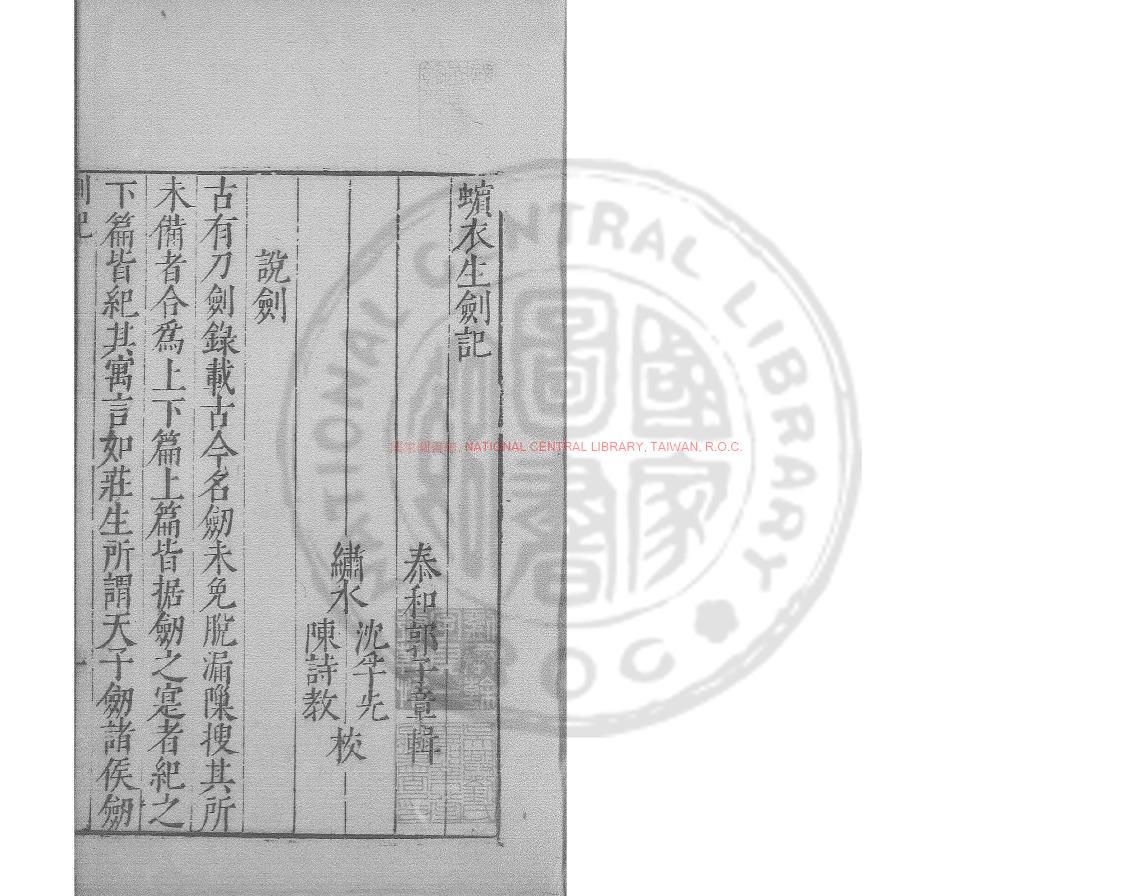 蠙衣生劍記
泰和郭子章輯
繡水沈孚先
陳詩教校
說劍
古有刀劍錄載古今名劒未免脫漏隟搜其所
未備者合為上下篇上篇皆据劒之寔者紀之
下篇皆紀其寓言如莊生所謂天子劒諸侯劒
NATIONAL CENTRAL LIBRARY, TAIWAN, R.O.C.
NATIONAL CENTRAL LIBRARY
R.O.C.
國家圖書館